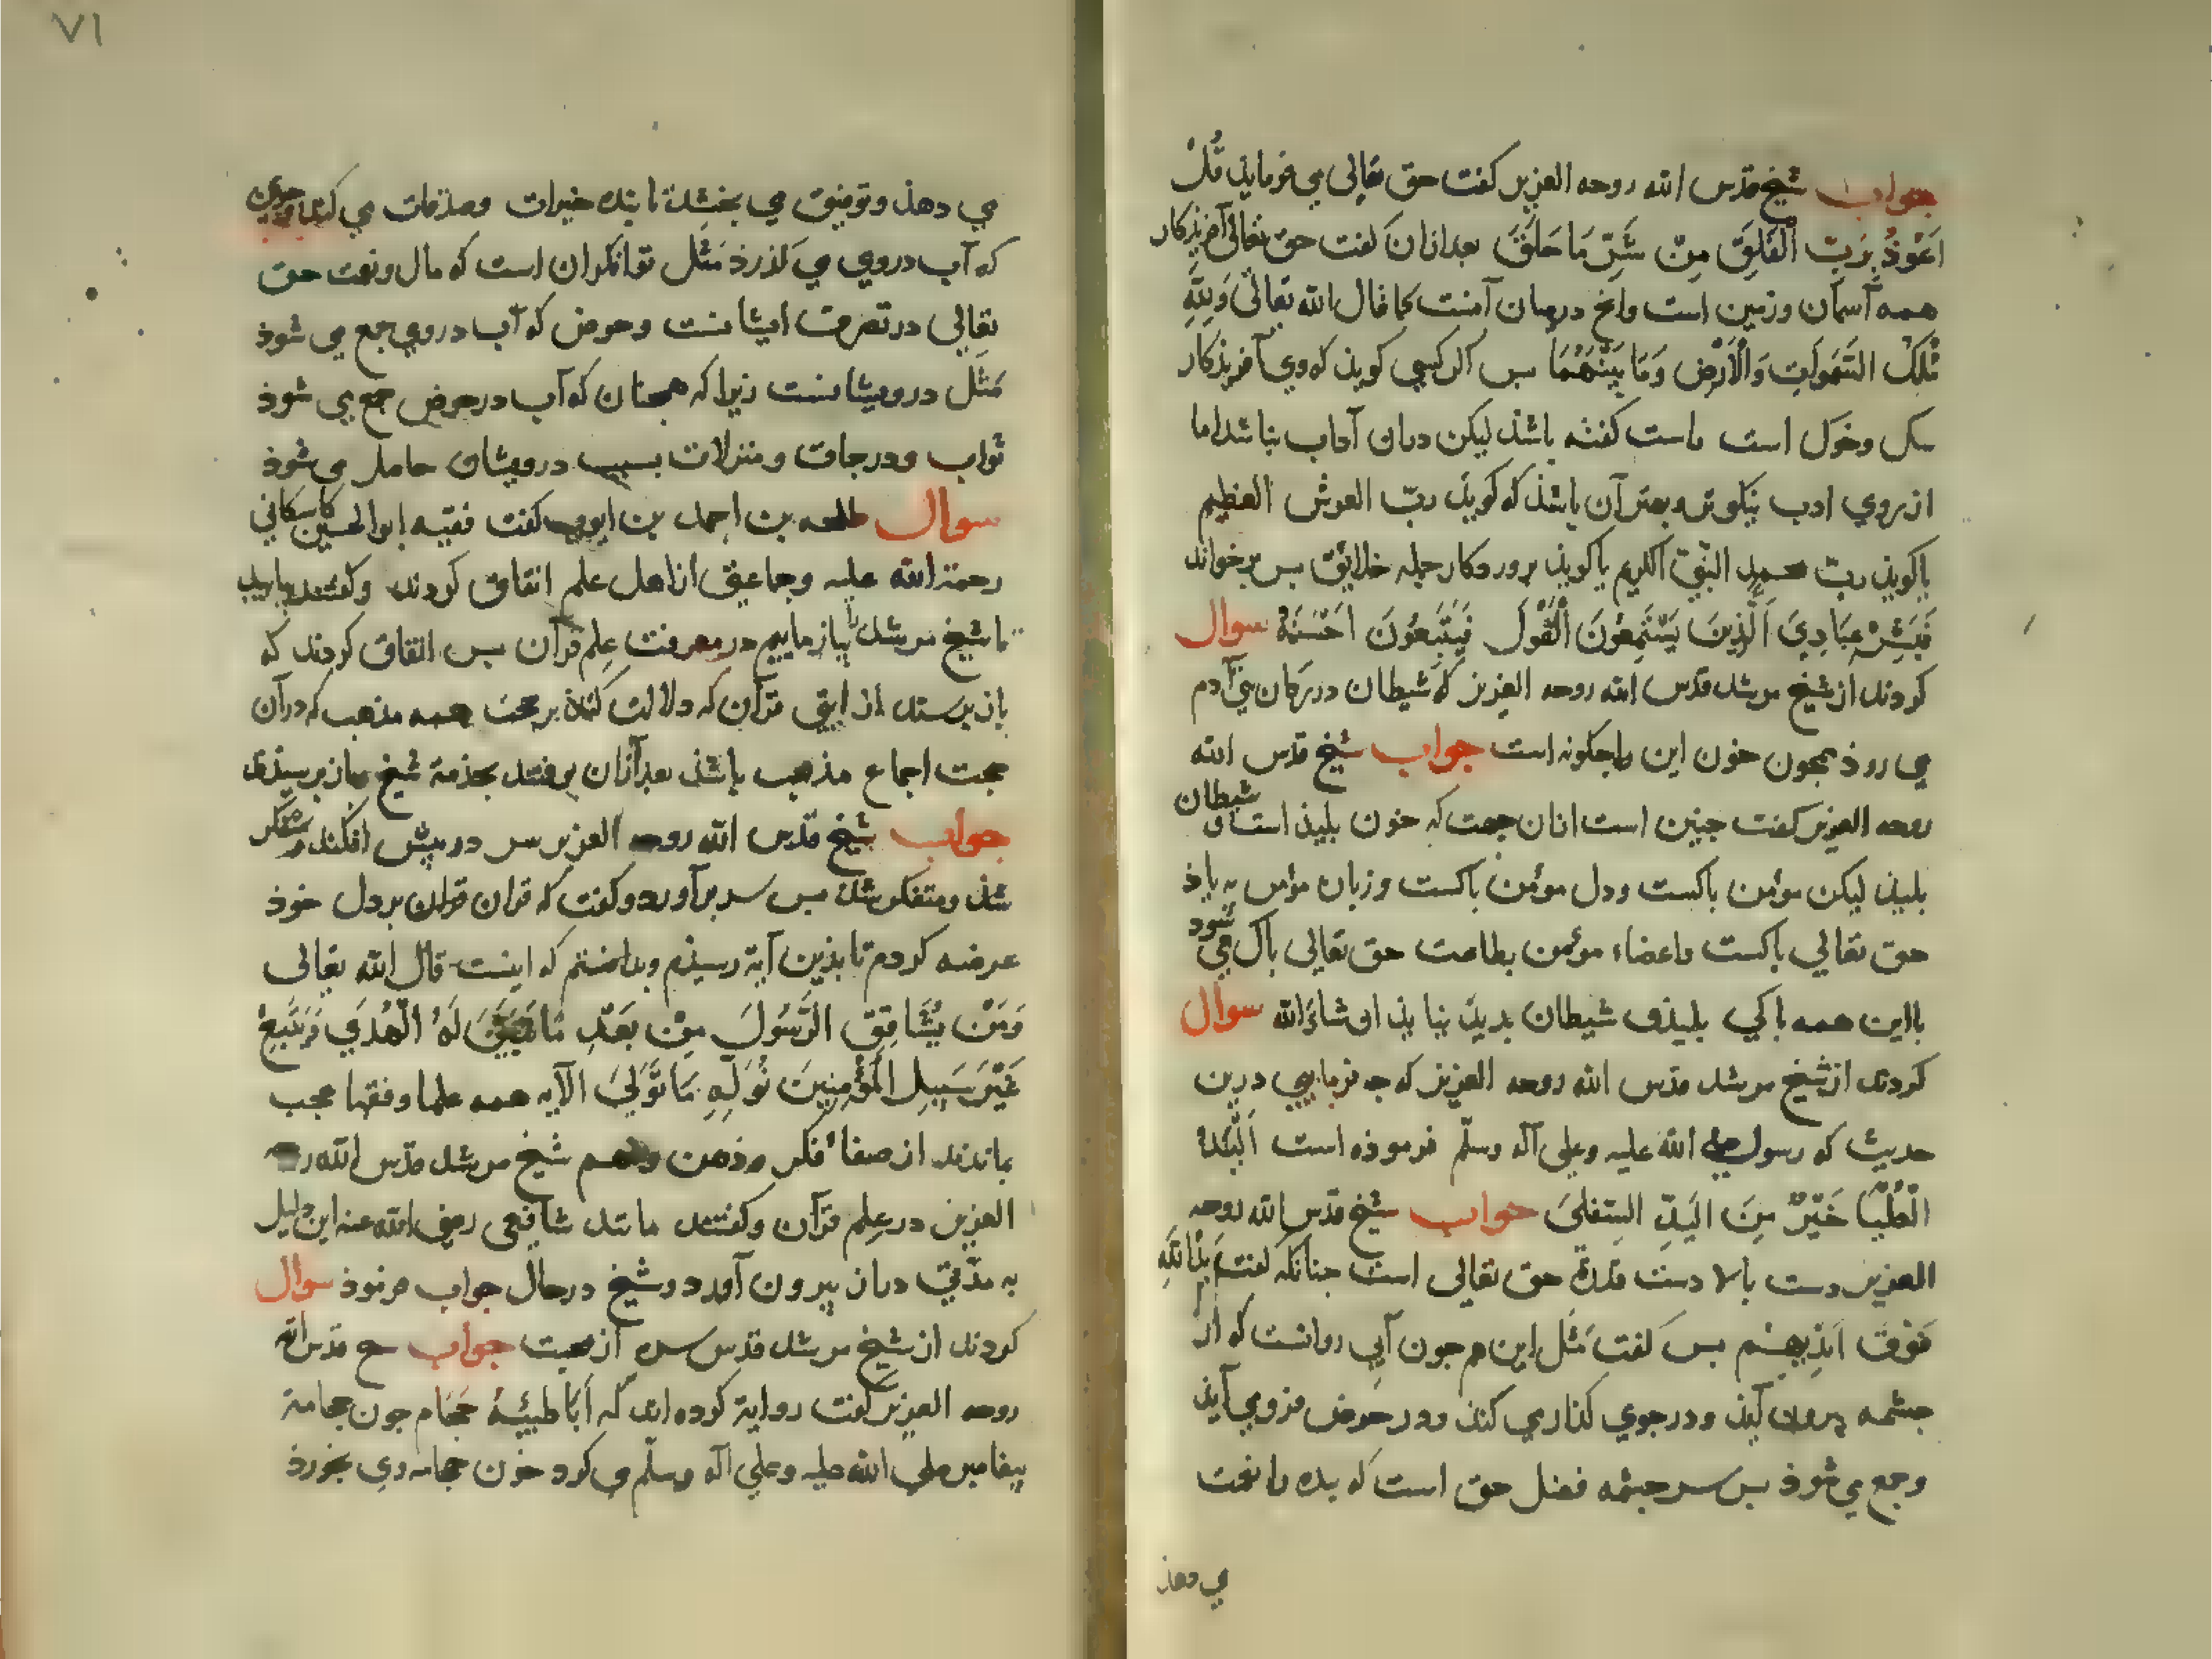 جواب شیخ قدس الله روحه العزیز کفت حق تعالی می فرماید قُلْ
اَعُوْذُ بِرَبِّ الْفَلَقِ مِنْ شَرِّ مَا خَلَقَ بعد ازان کفت حق تعالی آفریذکار
همه آسمان وزمین است وانج درمیان آنست کما قال الله تعالی وَلِلّٰهِ
مُلْكُ السَّمٰوٰتِ وَالْاَرْضِ وَمَا بَيْنَهُمَا بس اکر کسی کویذ که وی آفریذکار
سک وخوک است راست کفته باشذ لیکن دران آداب نباشد اما
ازروی ادب نیکوتر وبهتر آن باشذ که کویذ ربّ العرش العظیم
یا کویذ ربّ محمد النّبیّ الکریم یا کویذ پروردکار جمله خلایق بس برخواند
فَبَشِّرْ عِبَادِيَ الَّذِينَ يَسْتَمِعُونَ الْقَوْلَ فَيَتَّبِعُونَ اَحْسَنَهُ سوال
کردند از شیخ مرشد قدس الله روحه العزیز که شیطان دررکهان بنی آدم
می روذ همجون خون این را جکونه است جواب شیخ قدس الله
روحه العزیز کفت جنین است ازان جهت که خون بلیذ است و شیطان
بلیذ لیکن مؤمن باکست ودل مؤمن باکست وزبان مؤمن به یاذ
حق تعالی باکست واعضاء مؤمن بطاعت حق تعالی باک می شود
بااین همه باکی بلیذی شیطان بدید نیایذ ان شاء الله سوال
کردند از شیخ مرشد قدس الله روحه العزیز که جه فرمایی درین
حدیث که رسول صلی الله علیه وعلی آله وسلّم فرموذه است اَلْيَدُ
الْعُلْيَا خَيْرٌ مِنَ الْيَدِ السُّفْلَى جواب شیخ قدس الله روحه
العزیز دست بالا دست قدرة حق تعالی است جنانکه کفت يَدُ اللّٰهِ
فَوْقَ اَيْدِيهِمْ بس کفت مَثَل این هم جون آبی روانست که از
جشمه بیرون آیذ ودرجوی کذار می کنذ ودر حوض فرو می آیذ
وجمع می شوذ بس سرجشمه فضل حق است که بنده را نعمت
می دهذ
٧١
می دهذ وتوفیق می بخشد تا بنده خیرات وصدقات می کند وجوی
که آب دروی می کذرذ مَثَل توانکران است که مال ونعمت حق
تعالی درتصرف ایشانست وحوض که آب دروی جمع می شوذ
مَثَل درویشانست زیرا که همجنان که آب درحوض جمع می شوذ
ثواب ودرجات ومنزلات بسبب درویشان حاصل می شوذ
سوال طلحه بن احمد بن ایوب کفت فقیه ابوالحسین کاسکانی
رحمة الله علیه وجماعتی از اهل علم اتفاق کردند وکفتند بیایید
تا شیخ مرشد را بیازماییم درمعرفت علم قرآن بس اتفاق کردند که
بازبرسند از ایتی قرآن که دلالت کند بر صحت همه مذهب که درآن
حجت اجماع مذهب باشذ بعد ازان برفتند بخدمة شیخ وبازبرسیذند
جواب شیخ قدس الله روحه العزیز سر درپیش افکند و
شذ ومتفکر شذ بس سر برآورد وکفت که قران بردل خوذ
عرضه کردم تا بذین آیة رسیذم وبدانستم که اینست قال الله تعالی
وَمَنْ يُشَاقِقِ الرَّسُولَ مِنْ بَعْدِ مَا تَبَيَّنَ لَهُ الْهُدَى وَيَتَّبِعْ
غَيْرَ سَبِيلِ الْمُؤْمِنِينَ نُوَلِّهِ مَا تَوَلَّى الآیه همه علما وفقها عجب
بماندند از صفاء فکر وذهن وفهم شیخ مرشد قدس الله روحه
العزیز درعلم قرآن وکفتند مانند شافعی رضی الله عنه این دلیل
به مدّتی دران بیرون آورد وشیخ درحال جواب فرموذ سوال
کردند از شیخ مرشد قدس سره از محبت جواب شیخ قدس الله
روحه العزیز کفت روایة کرده اند که اَبَا طَيْبَة حجّام جون حجامة
بیغامبر صلی الله علیه وعلی آله وسلّم می کرد خون حجامه وی بخورذ